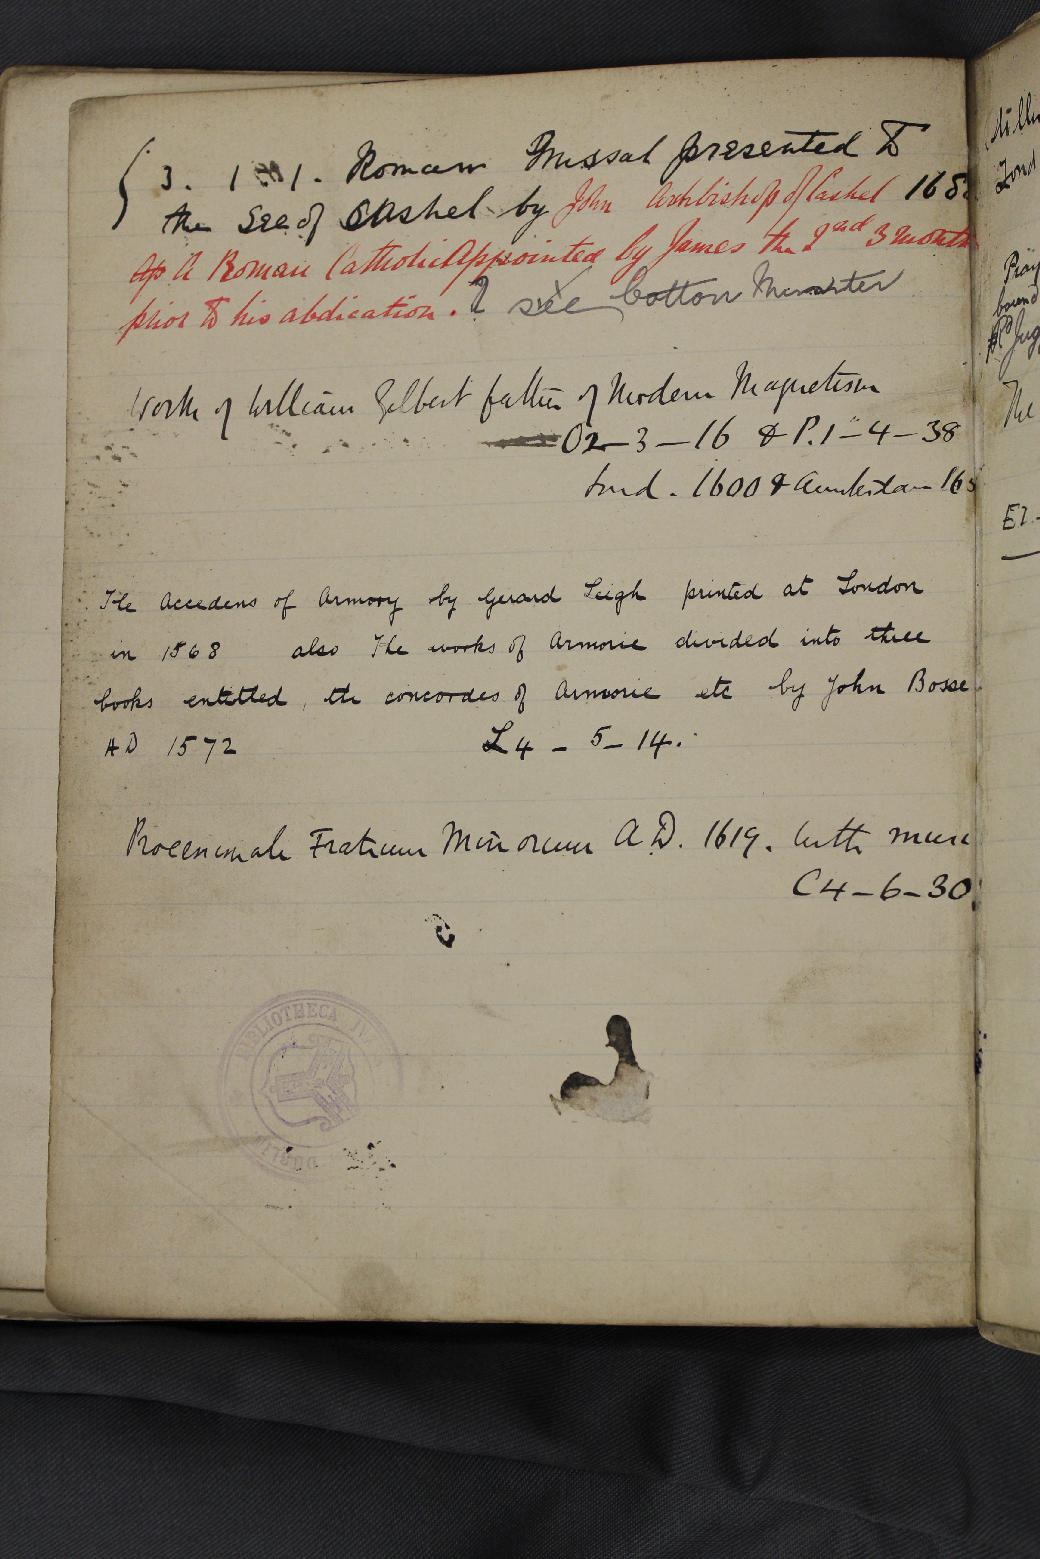 3. 1 1. Roman Missal presented to
the See of Cashel by John Archbishop of Cashel 168
A Roman Catholic Appointed by James the 2nd 3 months
prior to his abdication. ? see Cotton Munster
Work of William Gilbert father of Modern Magnetism
O2-3-16 & P.1-4-38
Lond. 1600 & Amsterdam 16
The Accedens of Armory by Gerard Leigh printed at London
in 1568 also The works of Armorie divided into three
books entitled, the concordes of Armorie etc by John Bosse
AD 1572 L4-5-14.
Fratrum Minorum A.D. 1619. with
C4-6-30
BIBLIOTHECA
The